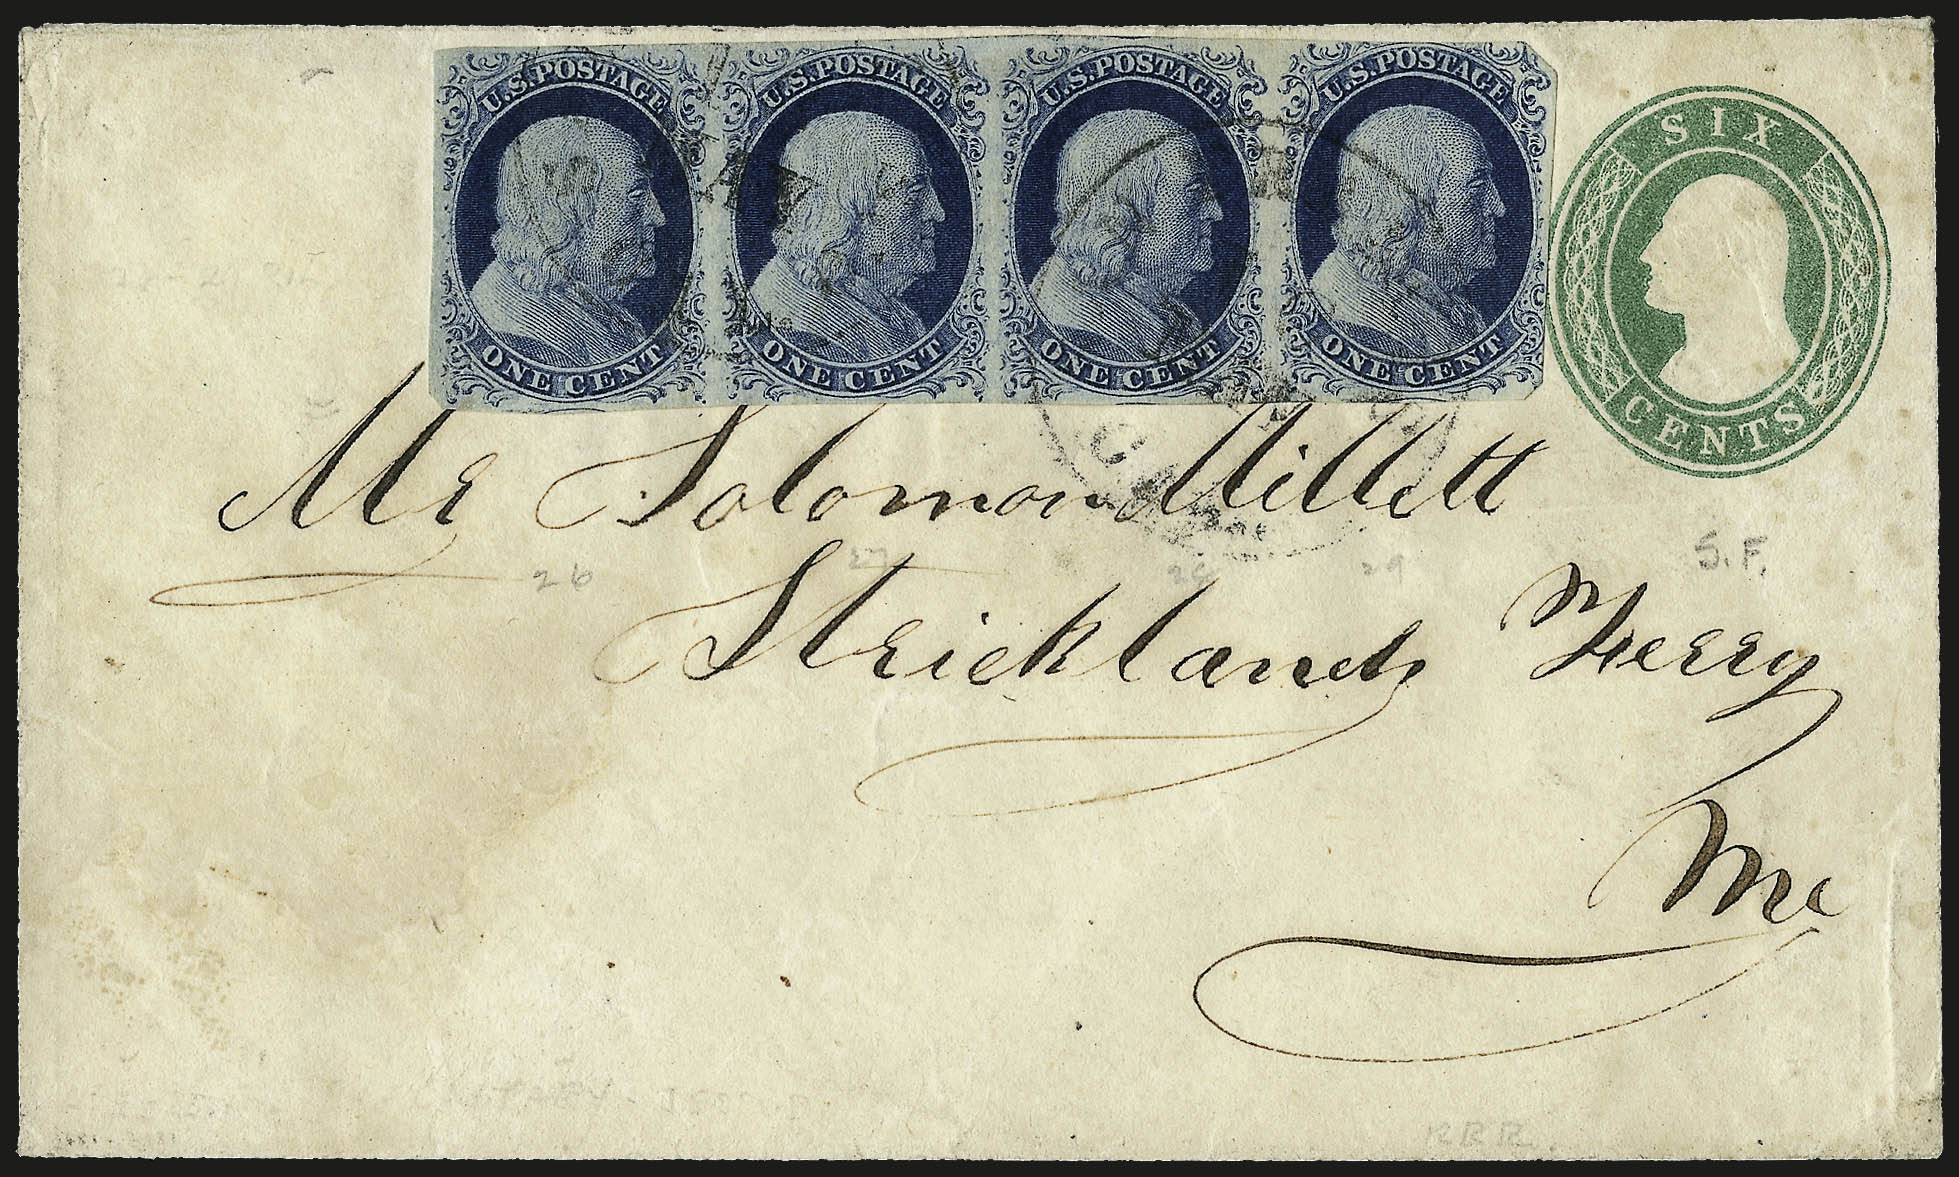 U.S. POSTAGE U.S. POSTAGE U.S. POSTAGE U.S. POSTAGE
ONE CENT ONE CENT ONE CENT ONE CENT
SIX
CENTS
Mr Solomon Millett
26 27 29
S.F.
Strickland Ferry
Me
RRR